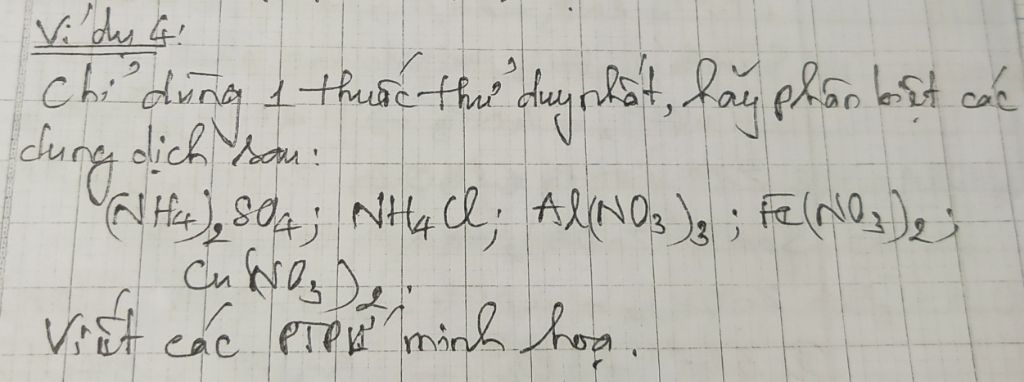 Ví dụ 4:
Chỉ dùng 1 thuốc thử duy nhất, hãy phân biệt các
dung dịch sau:
(NH4)2SO4; NH4Cl; Al(NO3)3; Fe(NO3)2;
Cu(NO3)2.
Viết các PTPƯ minh hoạ.